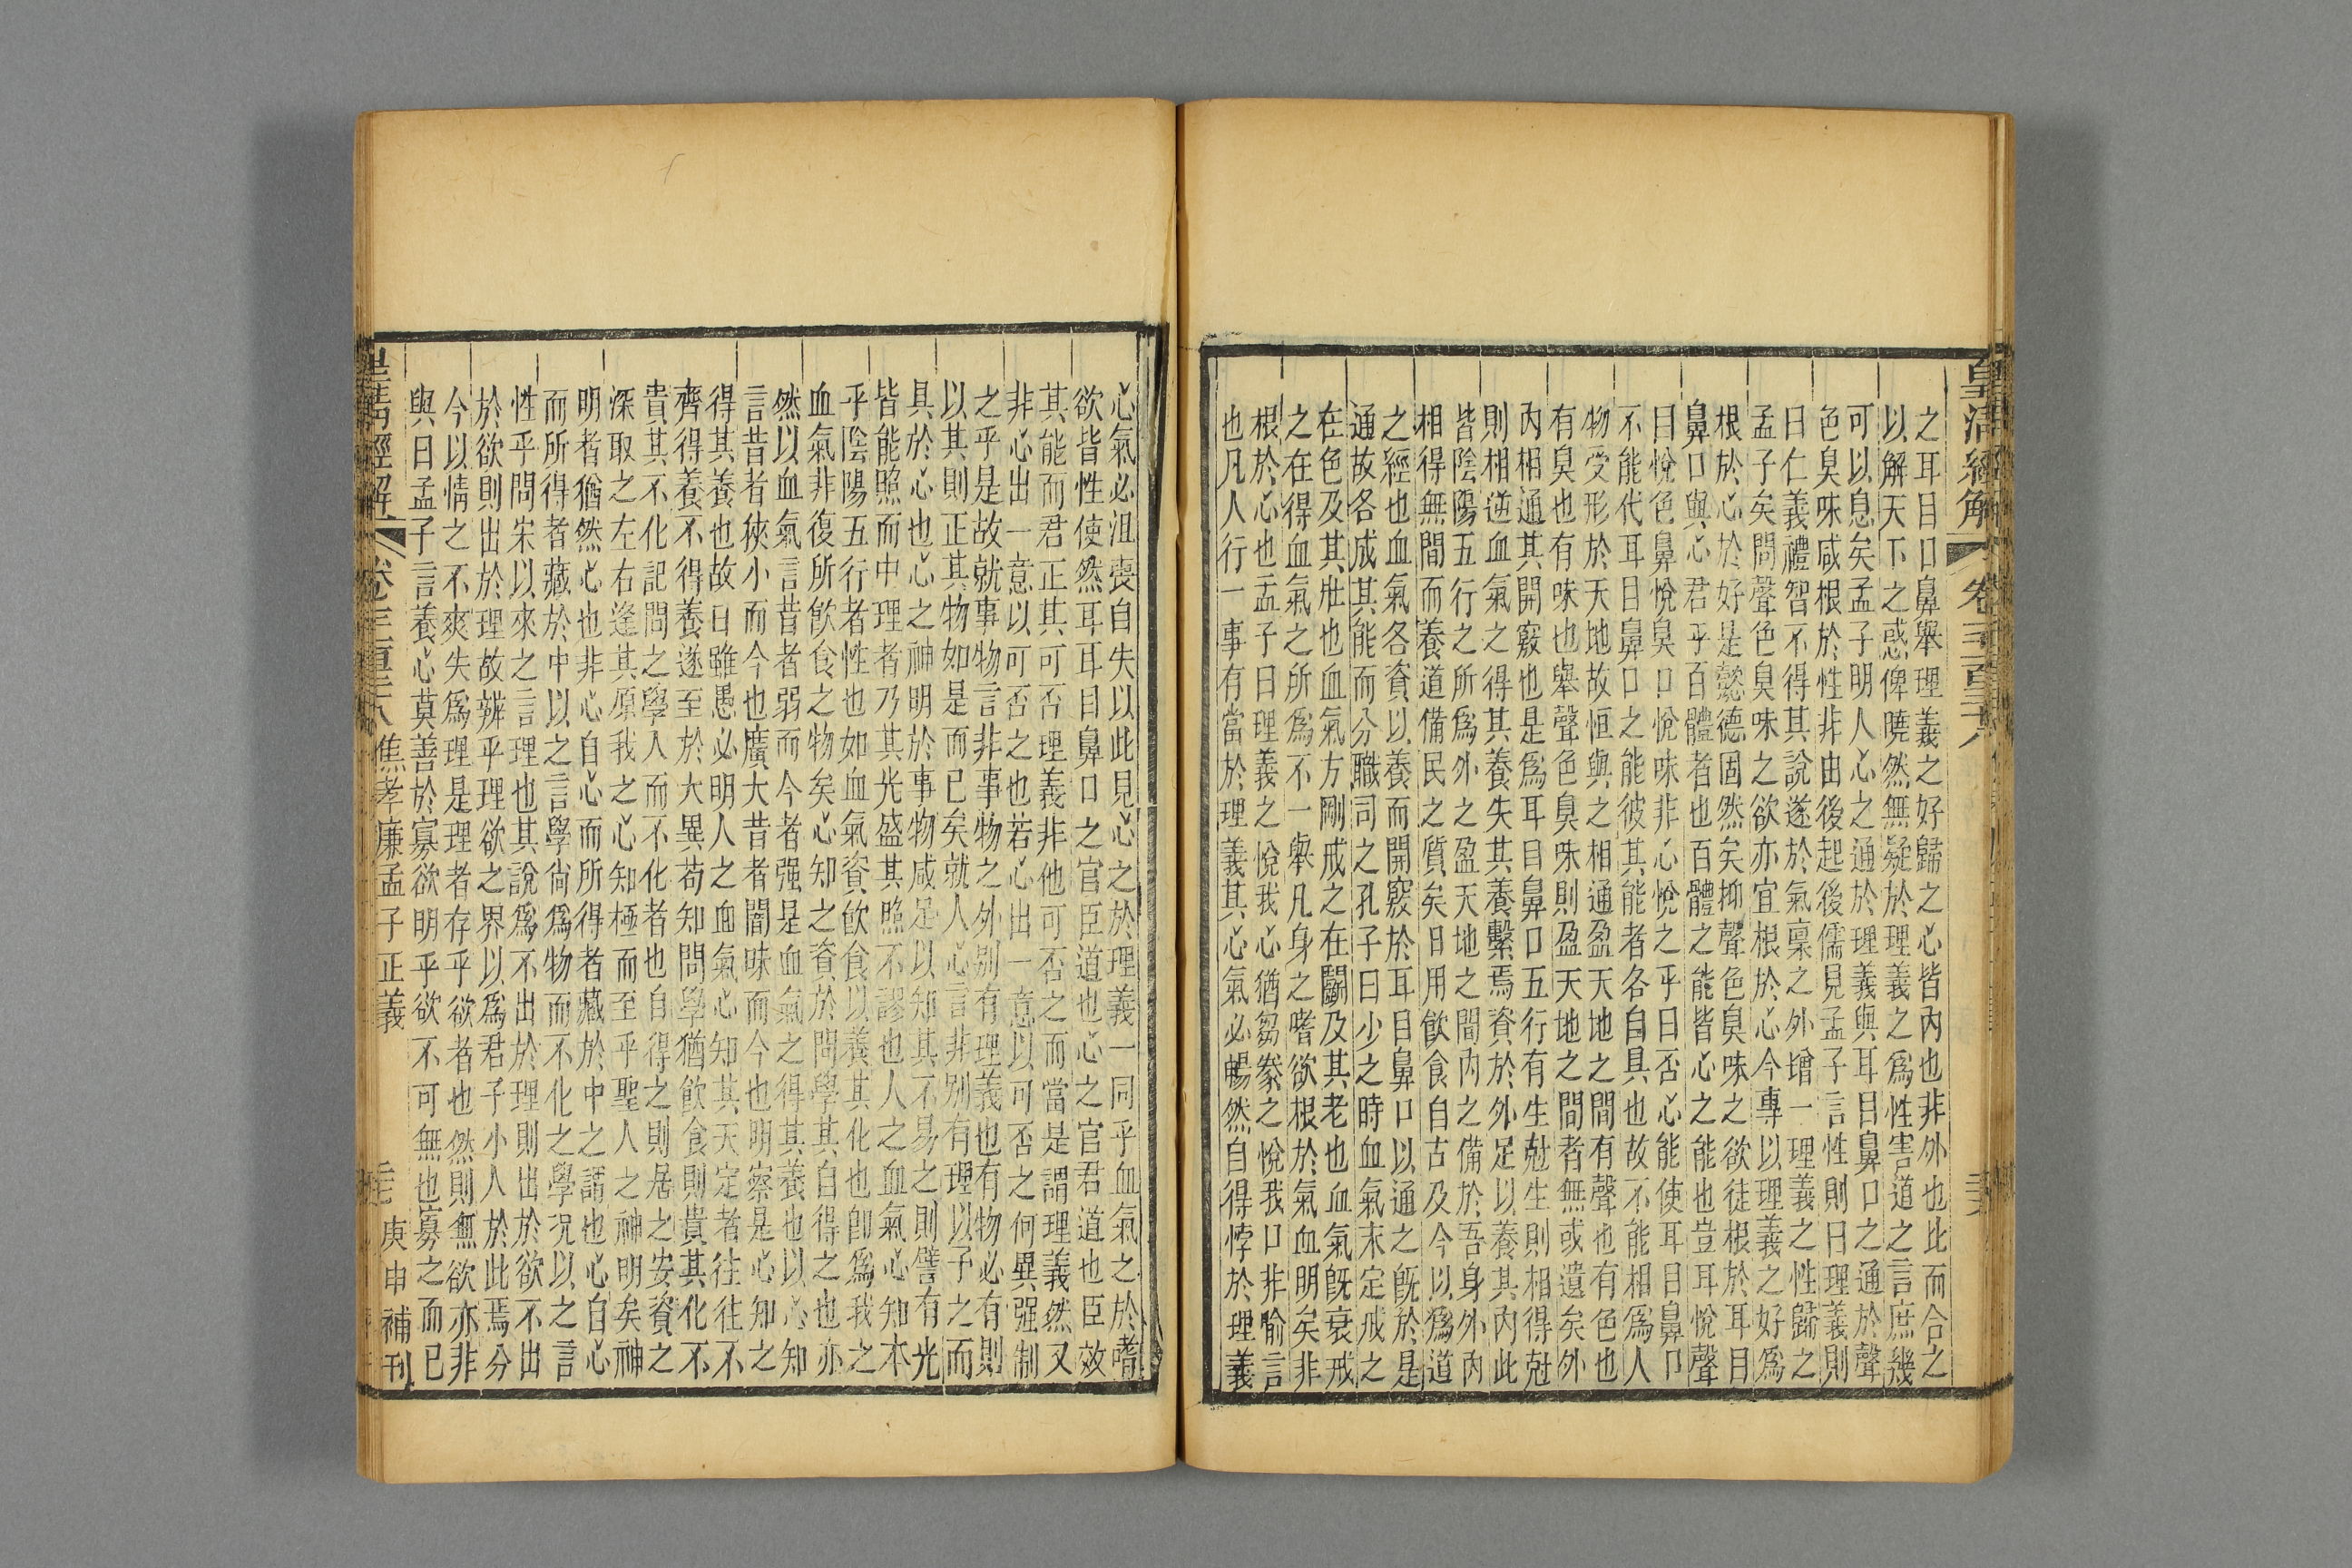 皇淸經解
卷
之耳目口鼻舉理義之好歸之心皆內也非外也比而合之
以解天下之惑俾曉然無疑於理義之爲性害道之言庶幾
可以息矣孟子明人心之通於理義與耳目鼻口之通於聲
色臭味咸根於性非由後起後儒見孟子言性則曰理義則
曰仁義禮智不得其說遂於氣稟之外增一理義之性歸之
孟子矣問聲色臭味之欲亦宜根於心今專以理義之好爲
根於心於好是懿德固然矣抑聲色臭味之欲徒根於耳目
鼻口與心君乎百體者也百體之能皆心之能也豈耳悅聲
目悅色鼻悅臭口悅味非心悅之乎曰否心能使耳目鼻口
不能代耳目鼻口之能彼其能者各自具也故不能相爲人
物受形於天地故恒與之相通盈天地之間有聲也有色也
有臭也有味也舉聲色臭味則盈天地之間者無或遺矣外
內相通其開竅也是爲耳目鼻口五行有生尅生則相得尅
則相逆血氣之得其養失其養繫焉資於外足以養其內此
皆陰陽五行之所爲外之盈天地之間內之備於吾身外內
相得無間而養道備民之質矣日用飮食自古及今以爲道
之經也血氣各資以養而開竅於耳目鼻口以通之旣於是
通故各成其能而分職司之孔子曰少之時血氣未定戒之
在色及其壯也血氣方剛戒之在鬭及其老也血氣旣衰戒
之在得血氣之所爲不一舉凡身之嗜欲根於氣血明矣非
根於心也孟子曰理義之悅我心猶芻豢之悅我口非喻言
也凡人行一事有當於理義其心氣必暢然自得悖於理義
心氣必沮喪自失以此見心之於理義一同乎血氣之於嗜
欲皆性使然耳耳目鼻口之官臣道也心之官君道也臣效
其能而君正其可否理義非他可否之而當是謂理義然又
非心出一意以可否之也若心出一意以可否之何異强制
之乎是故就事物言非事物之外別有理義也有物必有則
以其則正其物如是而已矣就人心言非別有理以予之而
具於心也心之神明於事物咸足以知其不易之則譬有光
皆能照而中理者乃其光盛其照不謬也人之血氣心知本
乎陰陽五行者性也如血氣資飮食以養其化也卽爲我之
血氣非復所飮食之物矣心知之資於問學其自得之也亦
然以血氣言昔者弱而今者强是血氣之得其養也以心知
言昔者狹小而今也廣大昔者闇昧而今也明察是心知之
得其養也故曰雖愚必明人之血氣心知其天定者往往不
齊得養不得養遂至於大異苟知問學猶飮食則貴其化不
貴其不化記問之學入而不化者也自得之則居之安資之
深取之左右逢其原我之心知極而至乎聖人之神明矣神
明者猶然心也非心自心而所得者藏於中之謂也心自心
而所得者藏於中以之言學尙爲物而不化之學況以之言
性乎問宋以來之言理也其說爲不出於理則出於欲不出
於欲則出於理故辨乎理欲之界以爲君子小人於此焉分
今以情之不爽失爲理是理者存乎欲者也然則無欲亦非
與曰孟子言養心莫善於寡欲明乎欲不可無也寡之而已
經解
焦孝廉孟子正義
庚申補刊